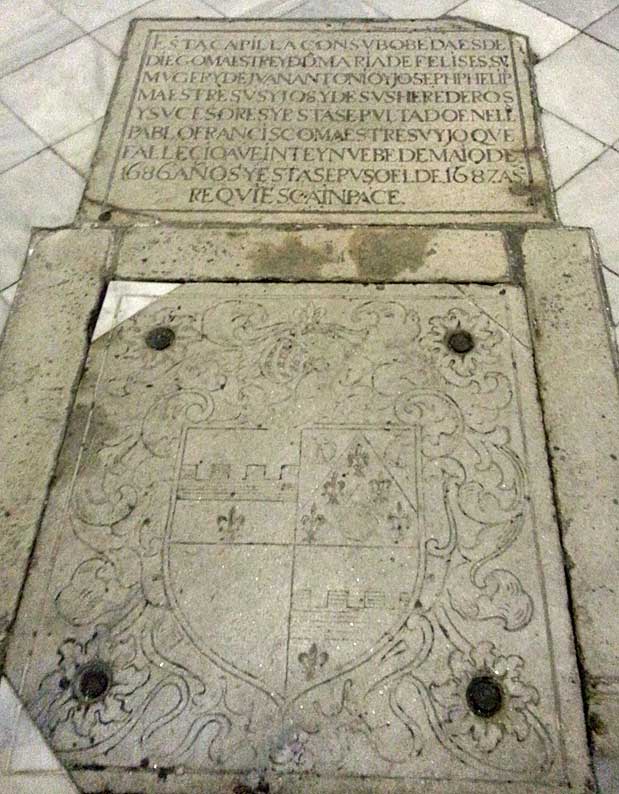 ESTACAPILLACONSVBOBEDAESDE
DIEGOMAESTREYDÕMARÍADEFELISESSV
MVGERYDEJVANANTONIOYJOSEPHPHELIP
MAESTRESVSYJOSYDESVSHEREDEROS
YSVCESORESYESTASEPVLTADOENELL
PABLOFRANCISCOMAESTRESVYJOQVE
FALLECIOAVEINTEYNVEBEDEMAIODE
1686AÑOSYESTASEPVSOELDE1687AS
REQVIESCAINPACE.